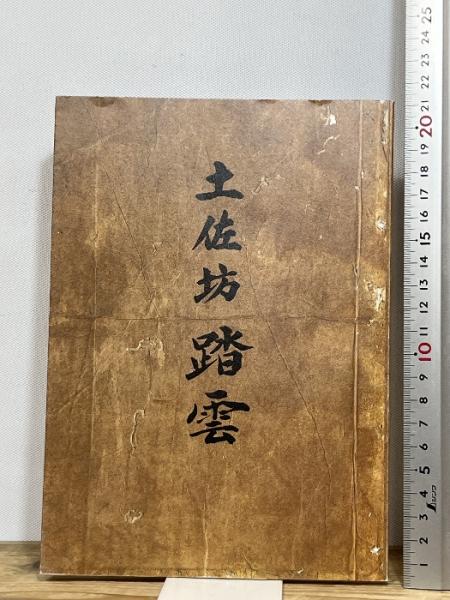 土佐坊踏雲
25
24
23
22
21
20
19
18
17
16
15
14
13
12
11
10
9
8
7
6
5
4
3
2
1
シンワ